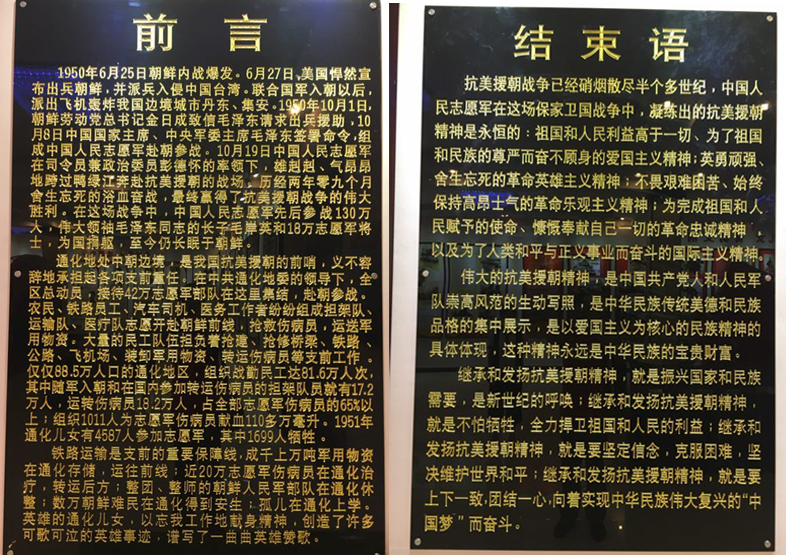 前 言
1950年6月25日朝鲜内战爆发。6月27日、美国悍然宣
布出兵朝鲜，并派兵入侵中国台湾。联合国军入朝以后，
派出飞机轰炸我国边境城市丹东、集安。1950年10月1日，
朝鲜劳动党总书记金日成致信毛泽东请求出兵援助，10
月8日中国国家主席、中央军委主席毛泽东签署命令，组
成中国人民志愿军赴朝参战。10月19日中国人民志愿军
在司令员兼政治委员彭德怀的率领下，雄赳赳、气昂昂
地跨过鸭绿江奔赴抗美援朝的战场。历经两年零九个月
舍生忘死的浴血奋战，最终赢得了抗美援朝战争的伟大
胜利。在这场战争中，中国人民志愿军先后参战130万
人，伟大领袖毛泽东同志的长子毛岸英和18万志愿军将
士，为国捐躯，至今仍长眠于朝鲜。
通化地处中朝边境，是我国抗美援朝的前哨，义不容
辞地承担起各项支前重任。在中共通化地委的领导下，全
区总动员，接待42万志愿军部队在这里集结，赴朝参战。
农民、铁路员工、汽车司机、医务工作者纷纷组成担架队、
运输队、医疗队志愿开赴朝鲜前线，抢救伤病员，运送军
用物资。大量的民工队伍担负着抢建、抢修桥梁、铁路、
公路、飞机场、装卸军用物资、转运伤病员等支前工作。
仅仅88.5万人口的通化地区，组织战勤民工达81.6万人次，
其中随军入朝和在国内参加转运伤病员的担架队员就有17.2
万人，运转伤病员19.2万人，占全部志愿军伤病员的65%以
上；组织1011人为志愿军伤病员献血110多万毫升。1951年
通化儿女有4587人参加志愿军，其中1699人牺牲。
铁路运输是支前的重要保障线，成千上万吨军用物资
在通化存储，运往前线；近20万志愿军伤病员在通化治
疗，转运后方；整团、整师的朝鲜人民军部队在通化休
整；数万朝鲜难民在通化得到安生；孤儿在通化上学。
英雄的通化儿女，以忘我工作地献身精神，创造了许多
可歌可泣的英雄事迹，谱写了一曲曲英雄赞歌。
结 束 语
抗美援朝战争已经硝烟散尽半个多世纪，中国人
民志愿军在这场保家卫国战争中，凝练出的抗美援朝
精神是永恒的：祖国和人民利益高于一切、为了祖国
和民族的尊严而奋不顾身的爱国主义精神；英勇顽强、
舍生忘死的革命英雄主义精神；不畏艰难困苦、始终
保持高昂士气的革命乐观主义精神；为完成祖国和人
民赋予的使命、慷慨奉献自己一切的革命忠诚精神，
以及为了人类和平与正义事业而奋斗的国际主义精神。
伟大的抗美援朝精神，是中国共产党人和人民军
队崇高风范的生动写照，是中华民族传统美德和民族
品格的集中展示，是以爱国主义为核心的民族精神的
具体体现，这种精神永远是中华民族的宝贵财富。
继承和发扬抗美援朝精神，就是振兴国家和民族
需要，是新世纪的呼唤；继承和发扬抗美援朝精神，
就是不怕牺牲，全力捍卫祖国和人民的利益；继承和
发扬抗美援朝精神，就是要坚定信念，克服困难，坚
决维护世界和平；继承和发扬抗美援朝精神，就是要
上下一致，团结一心，向着实现中华民族伟大复兴的“中
国梦”而奋斗。